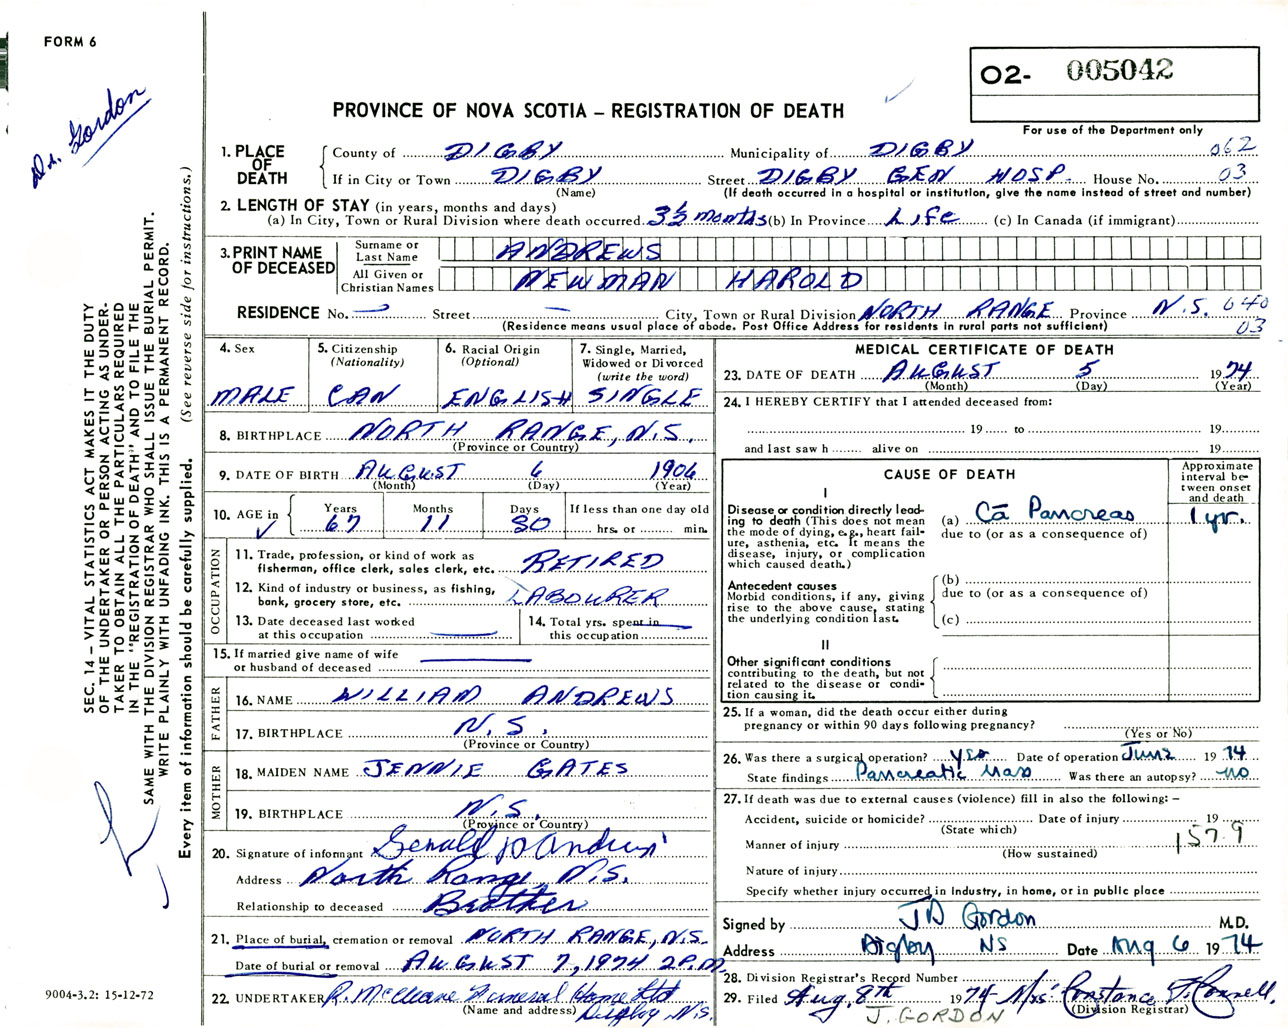 FORM 6
Dr. Gordon
O2- 005042
PROVINCE OF NOVA SCOTIA – REGISTRATION OF DEATH
For use of the Department only
1. PLACE OF DEATH
County of DIGBY Municipality of DIGBY 062
If in City or Town DIGBY Street DIGBY GEN HOSP. House No. 03
(Name) (If death occurred in a hospital or institution, give the name instead of street and number)
2. LENGTH OF STAY (in years, months and days)
(a) In City, Town or Rural Division where death occurred. 3½ months (b) In Province Life (c) In Canada (if immigrant)
3. PRINT NAME OF DECEASED
Surname or Last Name ANDREWS
All Given or Christian Names NEWMAN HAROLD
RESIDENCE No. — Street — City, Town or Rural Division NORTH RANGE Province N.S. 040
(Residence means usual place of abode. Post Office Address for residents in rural parts not sufficient) 03
4. Sex
MALE
5. Citizenship
(Nationality)
CAN
6. Racial Origin
(Optional)
ENGLISH
7. Single, Married,
Widowed or Divorced
(write the word)
SINGLE
8. BIRTHPLACE NORTH RANGE, N.S.
(Province or Country)
9. DATE OF BIRTH AUGUST 6 1906
(Month) (Day) (Year)
10. AGE in
Years Months Days If less than one day old
67 11 30 hrs. or min.
OCCUPATION
11. Trade, profession, or kind of work as
fisherman, office clerk, sales clerk, etc. RETIRED
12. Kind of industry or business, as fishing,
bank, grocery store, etc. LABOURER
13. Date deceased last worked
at this occupation
14. Total yrs. spent in
this occupation
15. If married give name of wife
or husband of deceased
FATHER
16. NAME WILLIAM ANDREWS
17. BIRTHPLACE N.S.
(Province or Country)
MOTHER
18. MAIDEN NAME JENNIE GATES
19. BIRTHPLACE N.S.
(Province or Country)
20. Signature of informant Gerald Andrews
Address North Range, N.S.
Relationship to deceased Brother
21. Place of burial, cremation or removal NORTH RANGE, N.S.
Date of burial or removal AUGUST 7, 1974 2 P.M.
22. UNDERTAKER R. Funeral Home Ltd
(Name and address) Digby N.S.
MEDICAL CERTIFICATE OF DEATH
23. DATE OF DEATH AUGUST 5 1974
(Month) (Day) (Year)
24. I HEREBY CERTIFY that I attended deceased from:
19 to 19
and last saw h alive on 19
CAUSE OF DEATH
Approximate
interval be-
tween onset
and death
I
Disease or condition directly lead-
ing to death (This does not mean
the mode of dying, e.g., heart fail-
ure, asthenia, etc. It means the
disease, injury, or complication
which caused death.)
(a) Ca Pancreas 1 yr.
due to (or as a consequence of)
Antecedent causes
Morbid conditions, if any, giving
rise to the above cause, stating
the underlying condition last.
(b)
due to (or as a consequence of)
(c)
II
Other significant conditions
contributing to the death, but not
related to the disease or condi-
tion causing it.
25. If a woman, did the death occur either during
pregnancy or within 90 days following pregnancy?
(Yes or No)
26. Was there a surgical operation? yes Date of operation June 1974
State findings Pancreatic Mass Was there an autopsy? no
27. If death was due to external causes (violence) fill in also the following: –
Accident, suicide or homicide? Date of injury 19
(State which)
Manner of injury 157.9
(How sustained)
Nature of injury
Specify whether injury occurred in Industry, in home, or in public place
Signed by J D Gordon M.D.
Address Digby NS Date Aug 6 1974
28. Division Registrar's Record Number
29. Filed Aug. 8th 1974 Mrs Constance
(Division Registrar)
J. GORDON
SEC. 14 – VITAL STATISTICS ACT MAKES IT THE DUTY
OF THE UNDERTAKER OR PERSON ACTING AS UNDER-
TAKER TO OBTAIN ALL THE PARTICULARS REQUIRED
IN THE "REGISTRATION OF DEATH" AND TO FILE THE
SAME WITH THE DIVISION REGISTRAR WHO SHALL ISSUE THE BURIAL PERMIT.
WRITE PLAINLY WITH UNFADING INK. THIS IS A PERMANENT RECORD.
Every item of information should be carefully supplied. (See reverse side for instructions.)
9004-3.2: 15-12-72